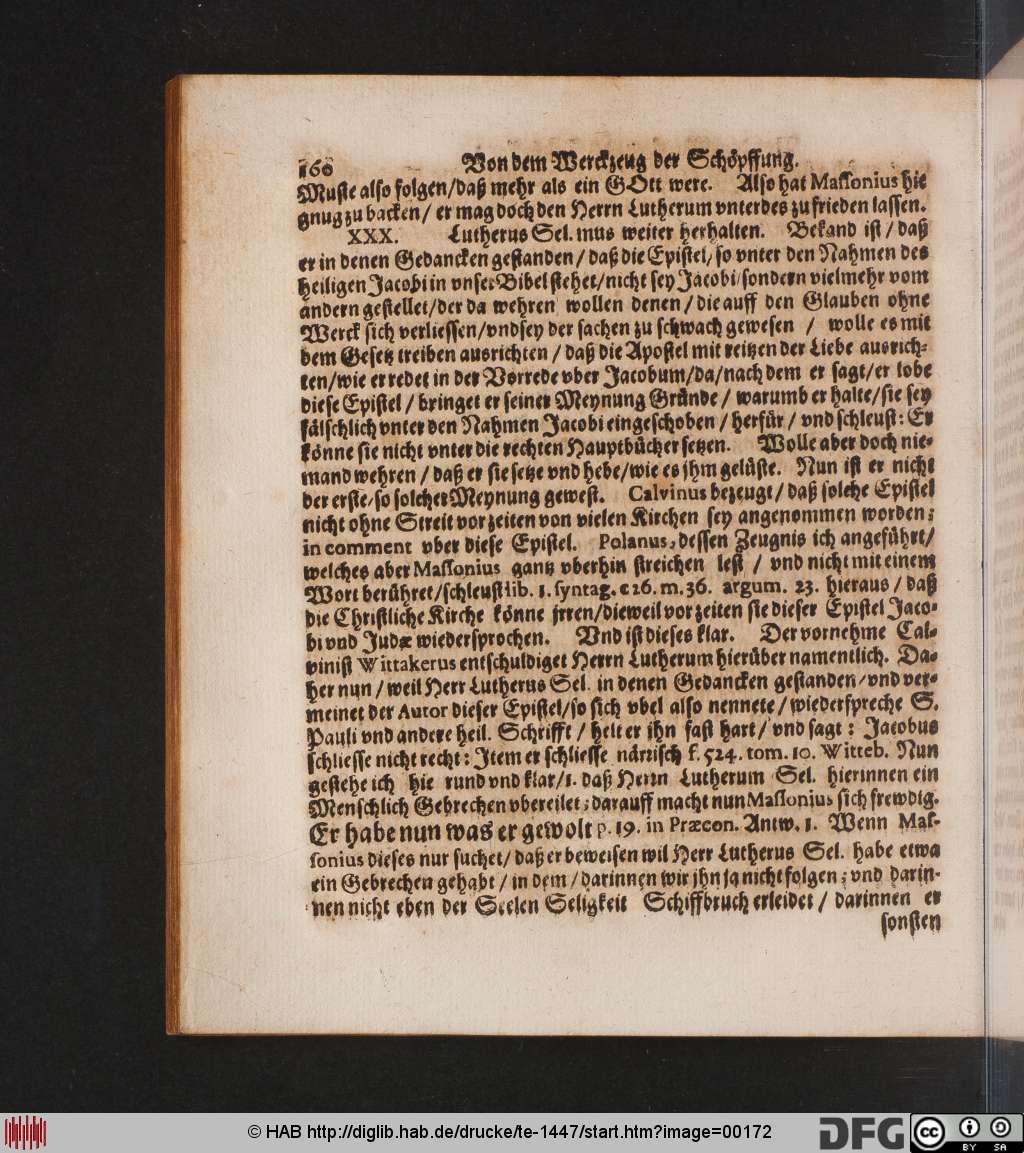 160 Von dem Werckzeug der Schöpffung.
Muste also folgen/daß mehr als ein GOtt were. Also hat Massonius hie
gnug zu backen/ er mag doch den Herrn Lutherum vnterdes zu frieden lassen.
XXX. Lutherus Sel. mus weiter herhalten. Bekand ist/ daß
er in denen Gedancken gestanden/ daß die Epistel/ so vnter den Nahmen des
heiligen Jacobi in vnser Bibel stehet/nicht sey Jacobi/sondern vielmehr vom
andern gestellet/der da wehren wollen denen/ die auff den Glauben ohne
Werck sich verliessen/vnd sey der sachen zu schwach gewesen / wolle es mit
dem Gesetz treiben ausrichten / daß die Apostel mit reitzen der Liebe ausrich-
ten/wie er redet in der Vorrede vber Jacobum/da/nach dem er sagt/er lobe
diese Epistel / bringet er seiner Meynung Gründe / warumb er halte/sie sey
fälschlich vnter den Nahmen Jacobi eingeschoben / herfür / vnd schleust: Er
könne sie nicht vnter die rechten Hauptbücher setzen. Wolle aber doch nie-
mand wehren / daß er sie setze vnd hebe/wie es jhm gelüste. Nun ist er nicht
der erste/so solcher Meynung gewest. Calvinus bezeugt/ daß solche Epistel
nicht ohne Streit vor zeiten von vielen Kirchen sey angenommen worden;
in comment vber diese Epistel. Polanus, dessen Zeugnis ich angeführt/
welches aber Massonius gantz vberhin streichen lest / vnd nicht mit einem
Wort berühret/schleust lib. 1. syntag. c 26. m. 36. argum. 23. hieraus / daß
die Christliche Kirche könne jrren/dieweil vor zeiten sie dieser Epistel Jaco-
bi vnd Judæ wiedersprochen. Vnd ist dieses klar. Der vornehme Cal-
vinist Wittakerus entschuldiget Herrn Lutherum hierüber namentlich. Da-
her nun / weil Herr Lutherus Sel. in denen Gedancken gestanden/vnd ver-
meinet der Autor dieser Epistel/so sich vbel also nennete/ wiederspreche S.
Pauli vnd andere heil. Schrifft / helt er ihn fast hart/ vnd sagt: Jacobus
schliesse nicht recht: Item er schliesse närrisch f. 524. tom. 10. Witteb. Nun
gestehe ich hie rund vnd klar/1. daß Herrn Lutherum Sel. hierinnen ein
Menschlich Gebrechen vbereilet; darauff macht nun Massonius sich frewdig.
Er habe nun was er gewolt p. 19. in Præcon. Antw. 1. Wenn Mas-
sonius dieses nur suchet/ daß er beweisen wil Herr Lutherus Sel. habe etwa
ein Gebrechen gehabt / in dem / darinnen wir jhn ja nicht folgen; vnd darin-
nen nicht eben der Seelen Seligkeit Schiffbruch erleidet / darinnen er
sonsten
© HAB http://diglib.hab.de/drucke/te-1447/start.htm?image=00172
DFG
cc BY SA